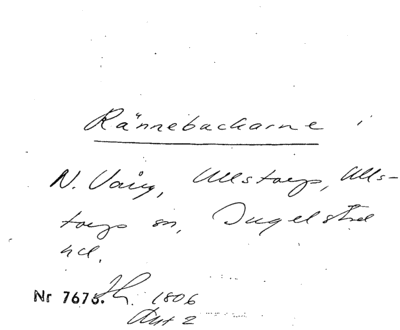 Rännebackarne i
N. Vång, Ullstorps, Ulls-
torps sn, Ingelstad
hd.
Nr 7675. 1806
Akt 2